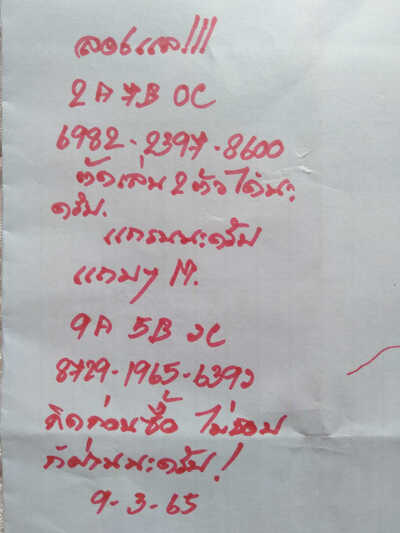 ลองแล!!!
2A 7B 0C
6982-2397-8600
ตัดเล่น 2 ตัวได้นะ
ครับ.
แถมนะครับ
แถมๆ M.
9A 5B 2C
8729-1965-6392
คิดก่อนซื้อ ไม่ชอบ
ก็ผ่านนะครับ!
9-3-65